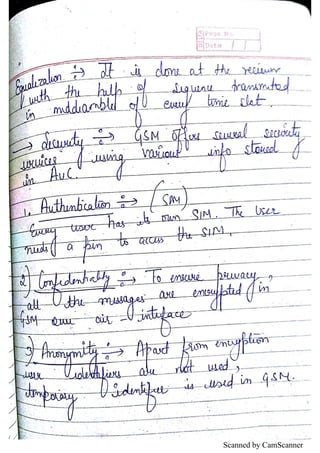 Page No.
Date / /
Equalization :→ It is done at the reciever
with the help of sequence transmitted
in middiambled of every time slot.
→ Security :→ GSM offers several security
services using various info stored
in AUC.
1, Authentication :→ (SIM)
Every user has its own SIM. The user
needs a pin to access the SIM.
2) Confidentiality :→ To ensure privacy,
all the messages are encrypted in
GSM over air-interface
3) Anonymity :→ Apart from encryption
user identifiers are not used,
temporary identifier is used in GSM.
Scanned by CamScanner